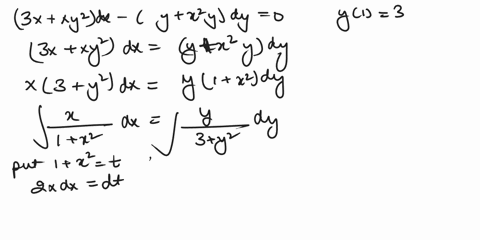 (3x + xy²)dx - ( y + x²y) dy = 0 y(1) = 3
(3x + xy²) dx = (y + x² y) dy
x (3 + y²) dx = y (1 + x²) dy
∫ x/(1 + x²) dx = ∫ y/(3 + y²) dy
put 1 + x² = t
2x dx = dt